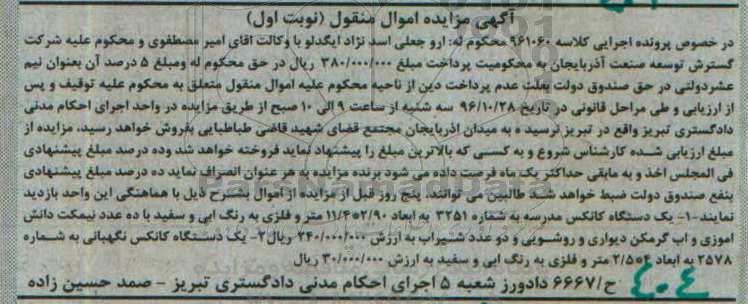 آگهی مزایده اموال منقول (نوبت اول)
در خصوص پرونده اجرایی کلاسه ۹۶۱۰۶۰ محکوم له: ارو جعلی اسد نژاد ایگدلو با وکالت اقای امیر مصطفوی و محکوم علیه شرکت
گسترش توسعه صنعت آذربایجان به محکومیت پرداخت مبلغ ۳۸۰/۰۰۰/۰۰۰ ریال در حق محکوم له ومبلغ ۵ درصد آن بعنوان نیم
عشردولتی در حق صندوق دولت بعلت عدم پرداخت دین از ناحیه محکوم علیه اموال منقول متعلق به محکوم علیه توقیف و پس
از ارزیابی و طی مراحل قانونی در تاریخ ۹۶/۱۰/۲۸ سه شنبه از ساعت ۹ الی ۱۰ صبح از طریق مزایده در واحد اجرای احکام مدنی
دادگستری تبریز واقع در تبریز نرسیده به میدان اذربایجان مجتمع قضای شهید قاضی طباطبایی بفروش خواهد رسید، مزایده از
مبلغ ارزیابی شده کارشناس شروع و به کسی که بالاترین مبلغ را پیشنهاد نماید فروخته خواهد شد وده درصد مبلغ پیشنهادی
فی المجلس اخذ و به مابقی حداکثر یک ماه فرصت داده می شود برنده مزایده به هر عنوان انصراف نماید ده درصد مبلغ پیشنهادی
بنفع صندوق دولت ضبط خواهد شد طالبین می توانند، پنج روز قبل از مزایده از اموال بشرح ذیل با هماهنگی این واحد بازدید
نمایند-۱- یک دستگاه کانکس مدرسه به شماره ۳۲۵۱ به ابعاد ۲/۹۰*۱۱/۴ متر و فلزی به رنگ ابی و سفید با ده عدد نیمکت دانش
اموزی و اب گرمکن دیواری و روشویی و دو عدد شیراب به ارزش ۲۴۰/۰۰۰/۰۰۰ ریال ۲- یک دستگاه کانکس نگهبانی به شماره
۲۵۷۸ به ابعاد ۴*۲/۵ متر و فلزی به رنگ ابی و سفید به ارزش ۳۰/۰۰۰/۰۰۰ ریال
ح/۶۶۶۷ دادورز شعبه ۵ اجرای احکام مدنی دادگستری تبریز - صمد حسین زاده